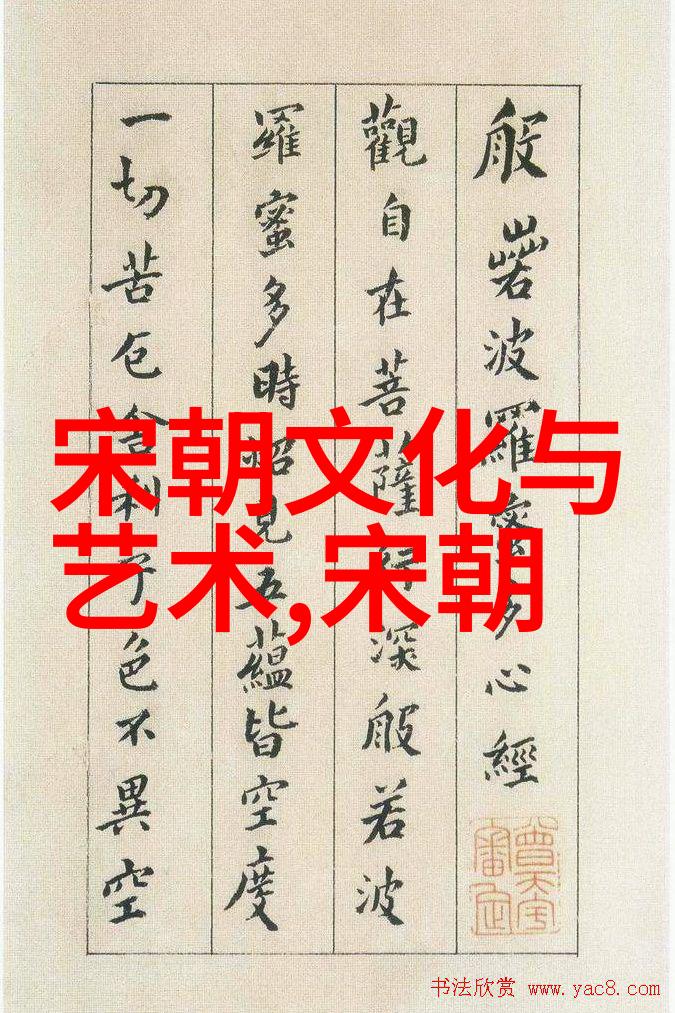 般若波羅蜜多心經
觀自在菩薩行深般若波
羅蜜多時照見五蘊皆空度
一切苦厄舍利子色不異空
宋朝文化与
艺术,宋朝
书法欣赏 www.yac8.com